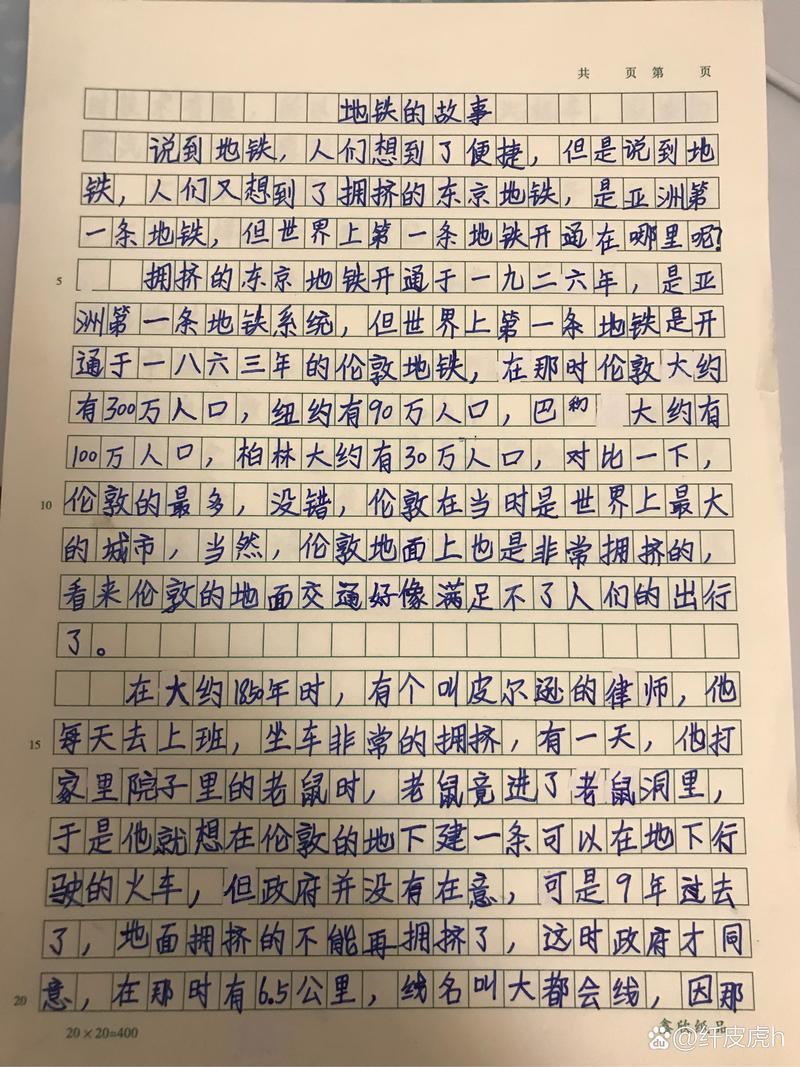 共 页 第 页
地铁的故事
说到地铁，人们想到了便捷，但是说到地
铁，人们又想到了拥挤的东京地铁，是亚洲第
一条地铁，但世界上第一条地铁开通在哪里呢？
5 拥挤的东京地铁开通于一九二六年，是亚
洲第一条地铁系统，但世界上第一条地铁是开
通于一八六三年的伦敦地铁，在那时伦敦大约
有300万人口，纽约有90万人口，巴 大约有
100万人口，柏林大约有30万人口，对比一下，
10 伦敦的最多，没错，伦敦在当时是世界上最大
的城市，当然，伦敦地面上也是非常拥挤的，
看来伦敦的地面交通好像满足不了人们的出行
了。
在大约1850年时，有个叫皮尔逊的律师，他
15 每天去上班，坐车非常的拥挤，有一天，他打
家里院子里的老鼠时，老鼠竟进了老鼠洞里，
于是他就想在伦敦的地下建一条可以在地下行
驶的火车，但政府并没有在意，可是9年过去
了，地面拥挤的不能再拥挤了，这时政府才同
20 意，在那时有6.5公里，线名叫大都会线，因那
20×20=400
鑫欣纸品
@纤皮虎h